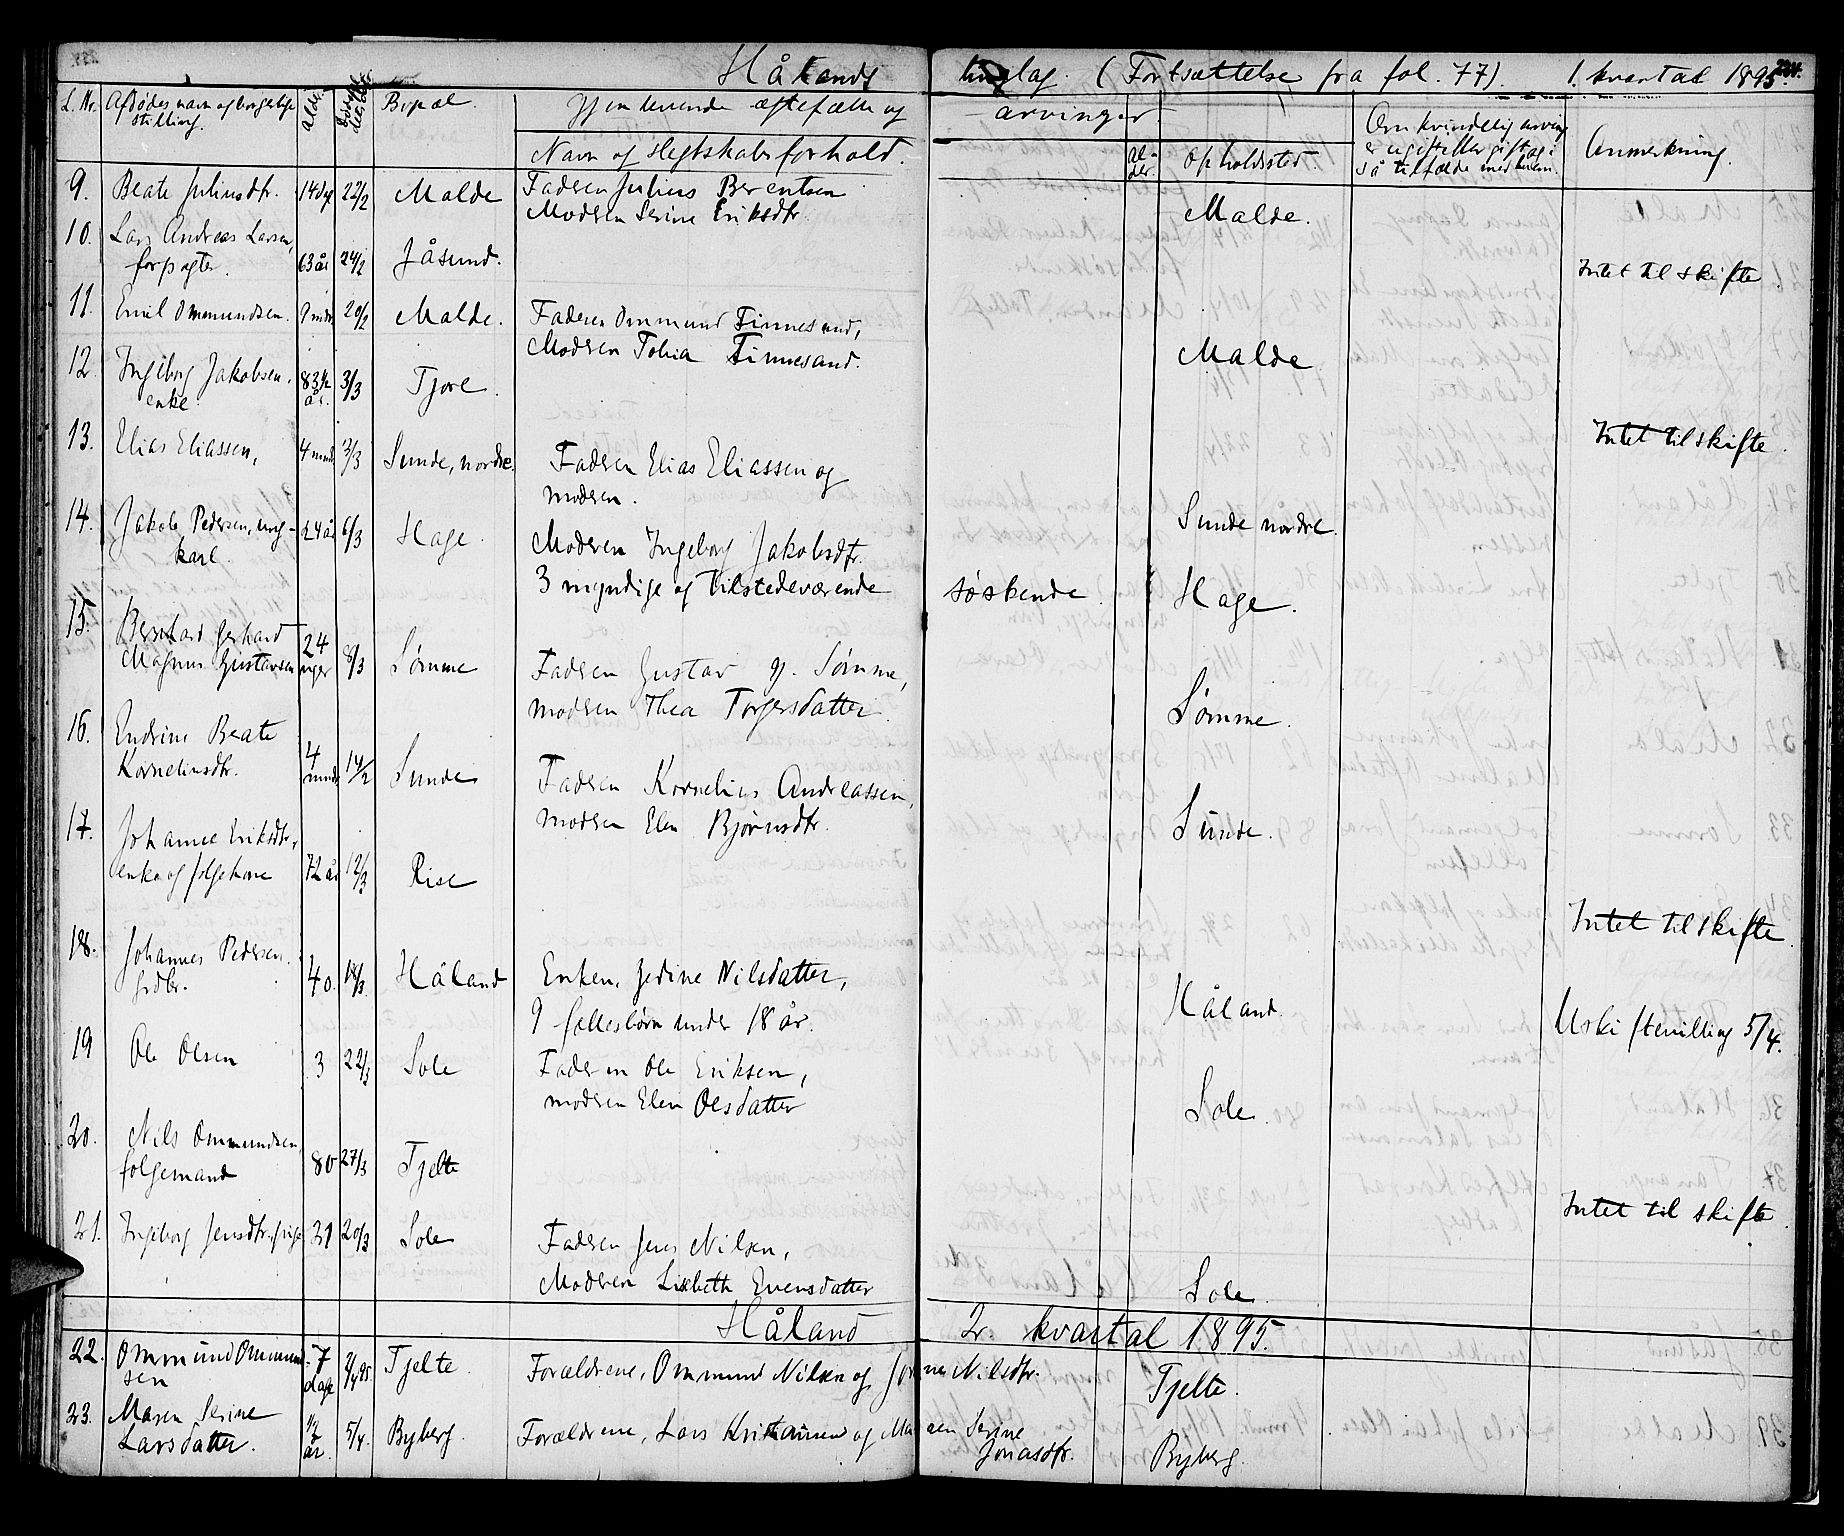 Hålands tinglag. (Fortsættelse fra fol. 77). 1. kvartal 1895.
L. Nr. Afdødes navn og borgerlige stilling. Alder Bopæl. Gjenlevende ægtefælle og arvinger.
Navn og slegtskabsforhold. alder opholdssted. Om kvindelig arving er ugift eller gift og i så tilfælde med hvem. Anmerkning.
9. Beate Juliusdtr. 14 dg 22/2 Malde Faderen Julius Berentsen
Moderen Serine Eriksdtr. Malde.
10. Lars Andreas Larsen,
forpagter. 63 år 24/2 Jåsund. Intet til skifte.
11. Emil Ommundsen. 9 mdr. 20/2 Malde. Faderen Ommund Finnesand,
Moderen Tobia Finnesand. Malde
12. Ingeborg Jakobsen,
enke. 83 1/2 år. 3/3 Tjore. Intet til skifte.
13. Elias Eliassen, 4 mnd. 2/3 Sunde, nordre. Faderen Elias Eliassen og
moderen. Sunde nordre.
14. Jakob Pedersen, ung-
karl. 24 år 6/3 Hage. Moderen Ingeborg Jakobsdtr.
3 myndige og tilstedeværende søskende. Hage.
15. Bernhard Gerhard
Magnus Gustavsen 24 uger 8/3 Sømme Faderen Gustav G. Sømme,
moderen Thea Torgersdatter. Sømme.
16. Endrine Beate
Kornelinsdtr. 4 mndr. 14/2 Sunde Faderen Kornelius Andreassen,
moderen Elen Bjørnsdtr. Sunde.
17. Johanne Eriksdtr.,
enke og følgekone 72 år 12/3 Rise Intet til skifte.
18. Johannes Pedersen.
grdbr. 40. 18/3. Håland Enken, Gedine Nilsdatter,
9 fællesbørn under 18 år. Håland. Uskiftevilling 5/4.
19 Ole Olsen 3 22/3 Sole Faderen Ole Eriksen,
moderen Elen Olsdatter Sole.
20. Nils Ommundsen,
følgemand 80 27/3 Tjelte Intet til skifte.
21. Ingeborg Jensdtr. pige 21 20/3 Sole Faderen Jens Nilsen,
Moderen Lisbeth Evensdatter Sole.
Håland 2. kvartal 1895.
22. Ommund Ommund-
sen 7 dage 2/4 95. Tjelte. Forældrene, Ommund Nilsen og Nilsdtr. Tjelte.
23. Maren Serine
Larsdatter. 1/2 år. 5/4. Byberg. Forældrene, Lars Kristiansen og Maren Serine
Jonasdtr. Byberg.